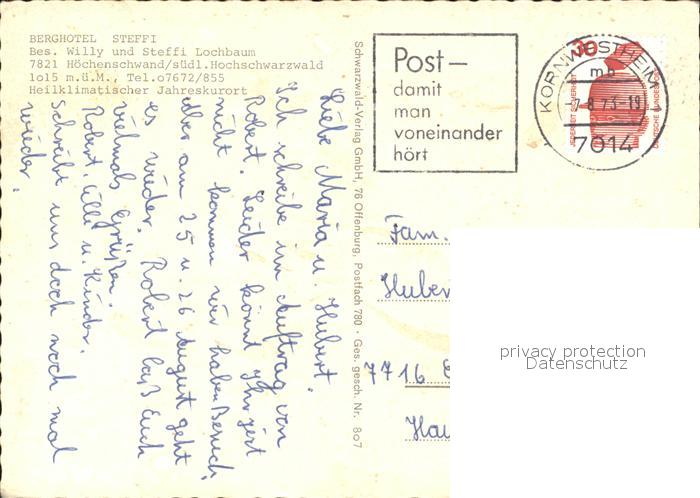 BERGHOTEL STEFFI
Bes. Willy und Steffi Lochbaum
7821 Höchenschwand/südl.Hochschwarzwald
1o15 m.ü.M., Tel.o7672/855
Heilklimatischer Jahreskurort
Liebe Maria u. Hubert.
Ich schreibe im Auftrag von
Robert. Leider könnt Ihr jetzt
nicht kommen wir haben Besuch,
aber am 25 u. 26 August geht
es wieder. Robert läßt Euch
vielmals Grüßen.
Robert, Ulli u. Kinder.
Schreibt uns doch noch mal
wieder.
Schwarzwald-Verlag GmbH, 76 Offenburg, Postfach 780 · Ges. gesch. Nr. 8o7
Post–
damit
man
voneinander
hört
KORNWESTHEIM
mb
-7.8.73-19
7014
30
JEDERZEIT SICHERHEIT
DEUTSCHE BUNDESPOST
Fam.
Huber
7716
Hau
privacy protection
Datenschutz